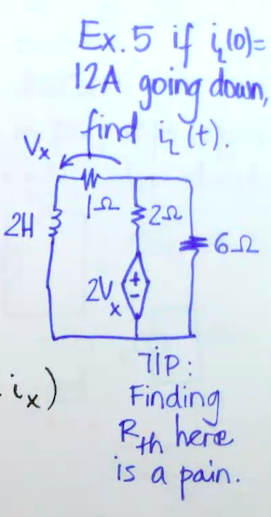 Ex. 5 if i_L(0)=
12A going down,
find i_L(t).
Vx
1Ω
2H
2Ω
6Ω
2Vx
+
-
ix)
TIP:
Finding
Rth here
is a pain.